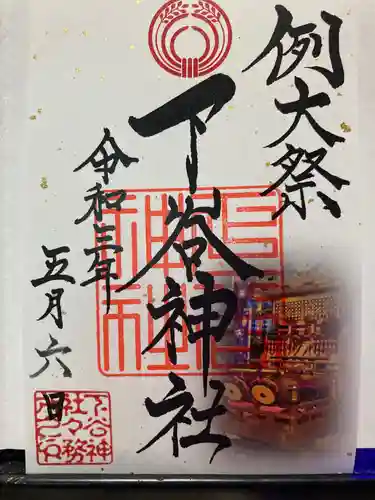 例大祭
下谷神社
令和三年
五月六日
下谷神
社々務